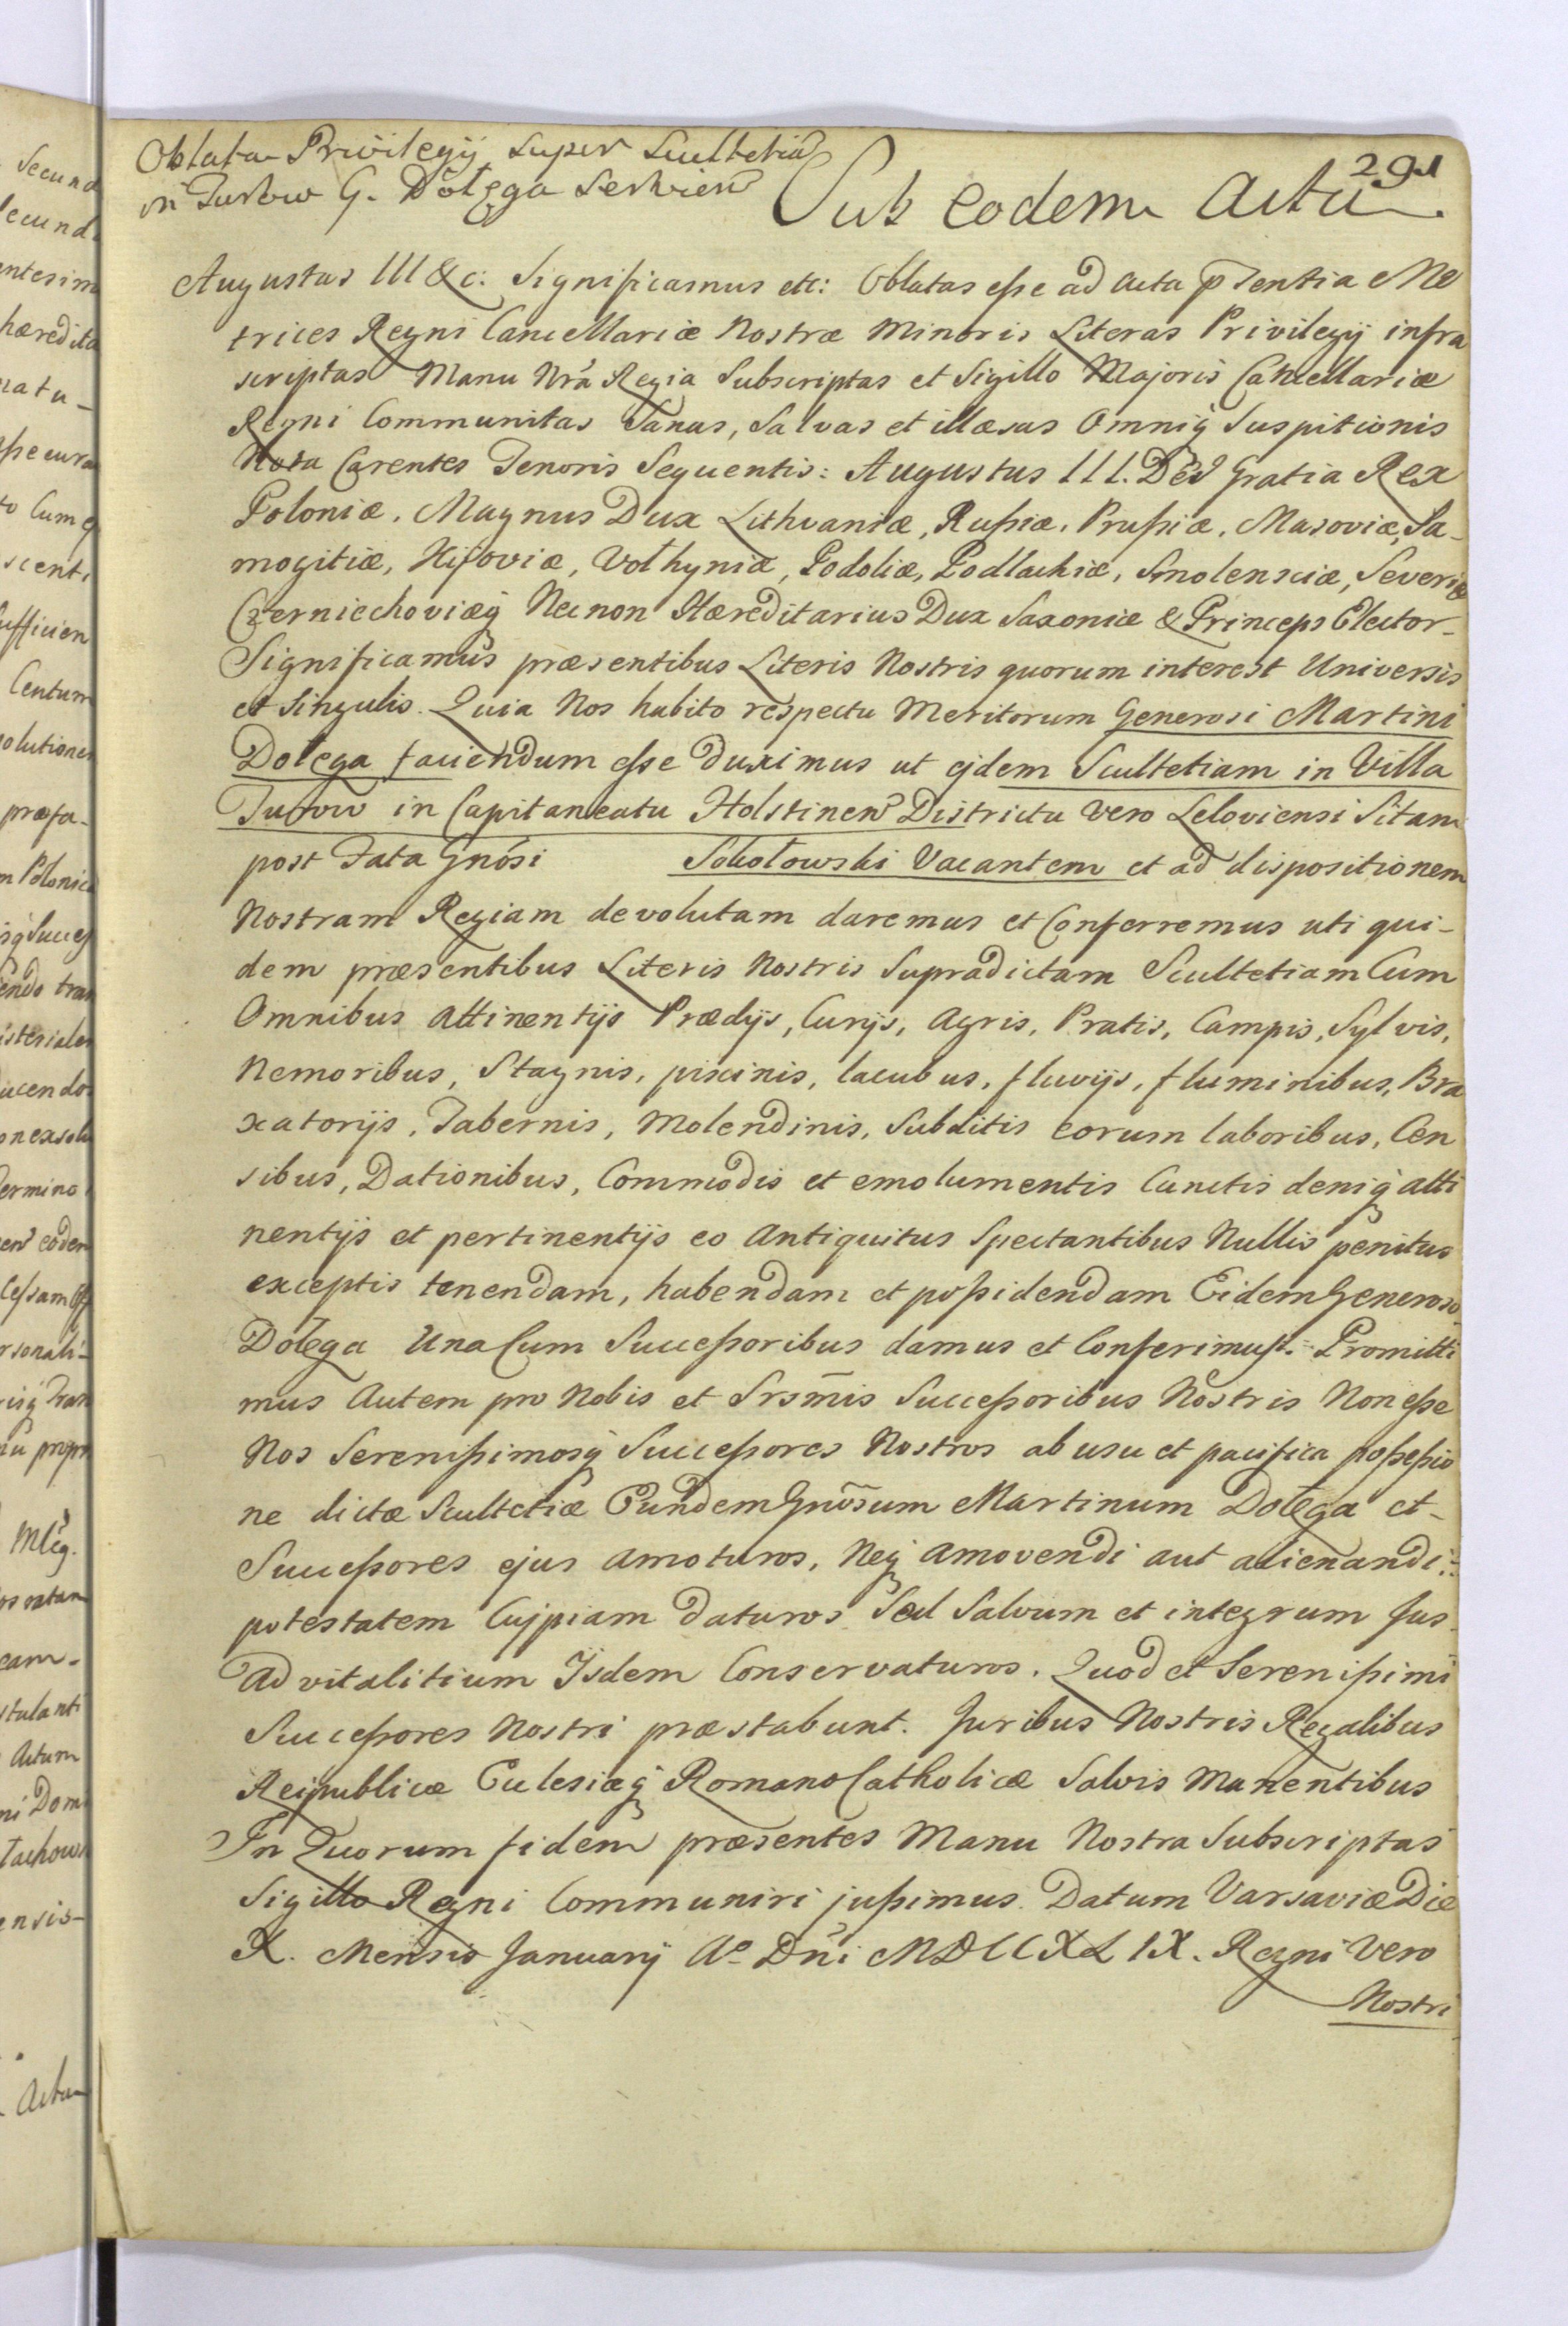 Oblata Privilegij super Scultetia
in Turow G. Dołęga Servien
291
Sub eodem Actu
Augustus III &c: Significamus etc: Oblatas esse ad Acta pñsentia Me
trices Regni Cancellariæ Nostræ Minoris Literas Privilegij infra
scriptas Manu Nrâ Regia Subscriptas et Sigillo Majoris Cancellariæ
Regni Communitas Sanas, Salvas et illæsas Omniq Suspitionis
Nota Carentes Tenoris Sequentis: Augustus III. Dei Gratia Rex
Poloniæ, Magnus Dux Lithvaniæ, Rußiæ, Prußiæ, Masoviæ, Sa-
mogitiæ, Kijoviæ, Volhyniæ, Podoliæ, Podlachiæ, Smolensciæ, Severiæ
Czerniechoviæq Necnon Hæreditarius Dux Saxoniæ & Princeps Elector-
Significamus præsentibus Literis Nostris quorum interest Universis
et Singulis. Quia Nos habito respectu Meritorum Generosi Martini
Dolega faciendum eße duximus ut ejdem Scultetiam in Villa
Turow in Capitaneatu Holstinen Districtu vero Leloviensi Sitam
post Fata Gnosi Sokołowski Vacantem et ad dispositionem
Nostram Regiam devolutam daremus et Conferremus uti qui-
dem præsentibus Literis Nostris Supradictam Scultetiam Cum
Omnibus attinentijs Prædijs, Curijs, Agris, Pratis, Campis, Sylvis,
Nemoribus, Stagnis, piscinis, lacubus, fluvijs, fluminibus, Bra
xatorijs, Tabernis, Molendinis, Subditis eorum laboribus, Cen
sibus, Dationibus, Commodis et emolumentis Cunctis deniq atti
nentijs et pertinentijs eo Antiquitus Spectantibus Nullis penitus
exceptis tenendam, habendam et poßidendam Eidem Generoso
Dołega Una Cum Succeßoribus damus et Conferimus. Promitti
mus Autem pro Nobis et Srsm̃is Succeßoribus Nostris Non eße
Nos Serenißimosq Succeßores Nostros ab usu et pacifica poßeßio
ne dictæ Scultetiæ Eundem Gnõsum Martinum Dołega et-
Succeßores ejus amoturos, Neq amovendi aut alienandi
potestatem Cujpiam daturos Sed Salvum et integrum Jus
Advitalitium Ijsdem Conservaturos. Quod et Serenißimi
Succeßores Nostri præstabunt. Juribus Nostris Regalibus
Reipublicæ Eclesiæq Romano Catholicæ Salvis Manentibus
In Quorum fidem præsentes Manu Nostra Subscriptas
Sigillo Regni Communiri jußimus. Datum Varsaviæ Die
X. Mensis Januarij Aº Dñi MDCCXLIX. Regni Vero
Nostri